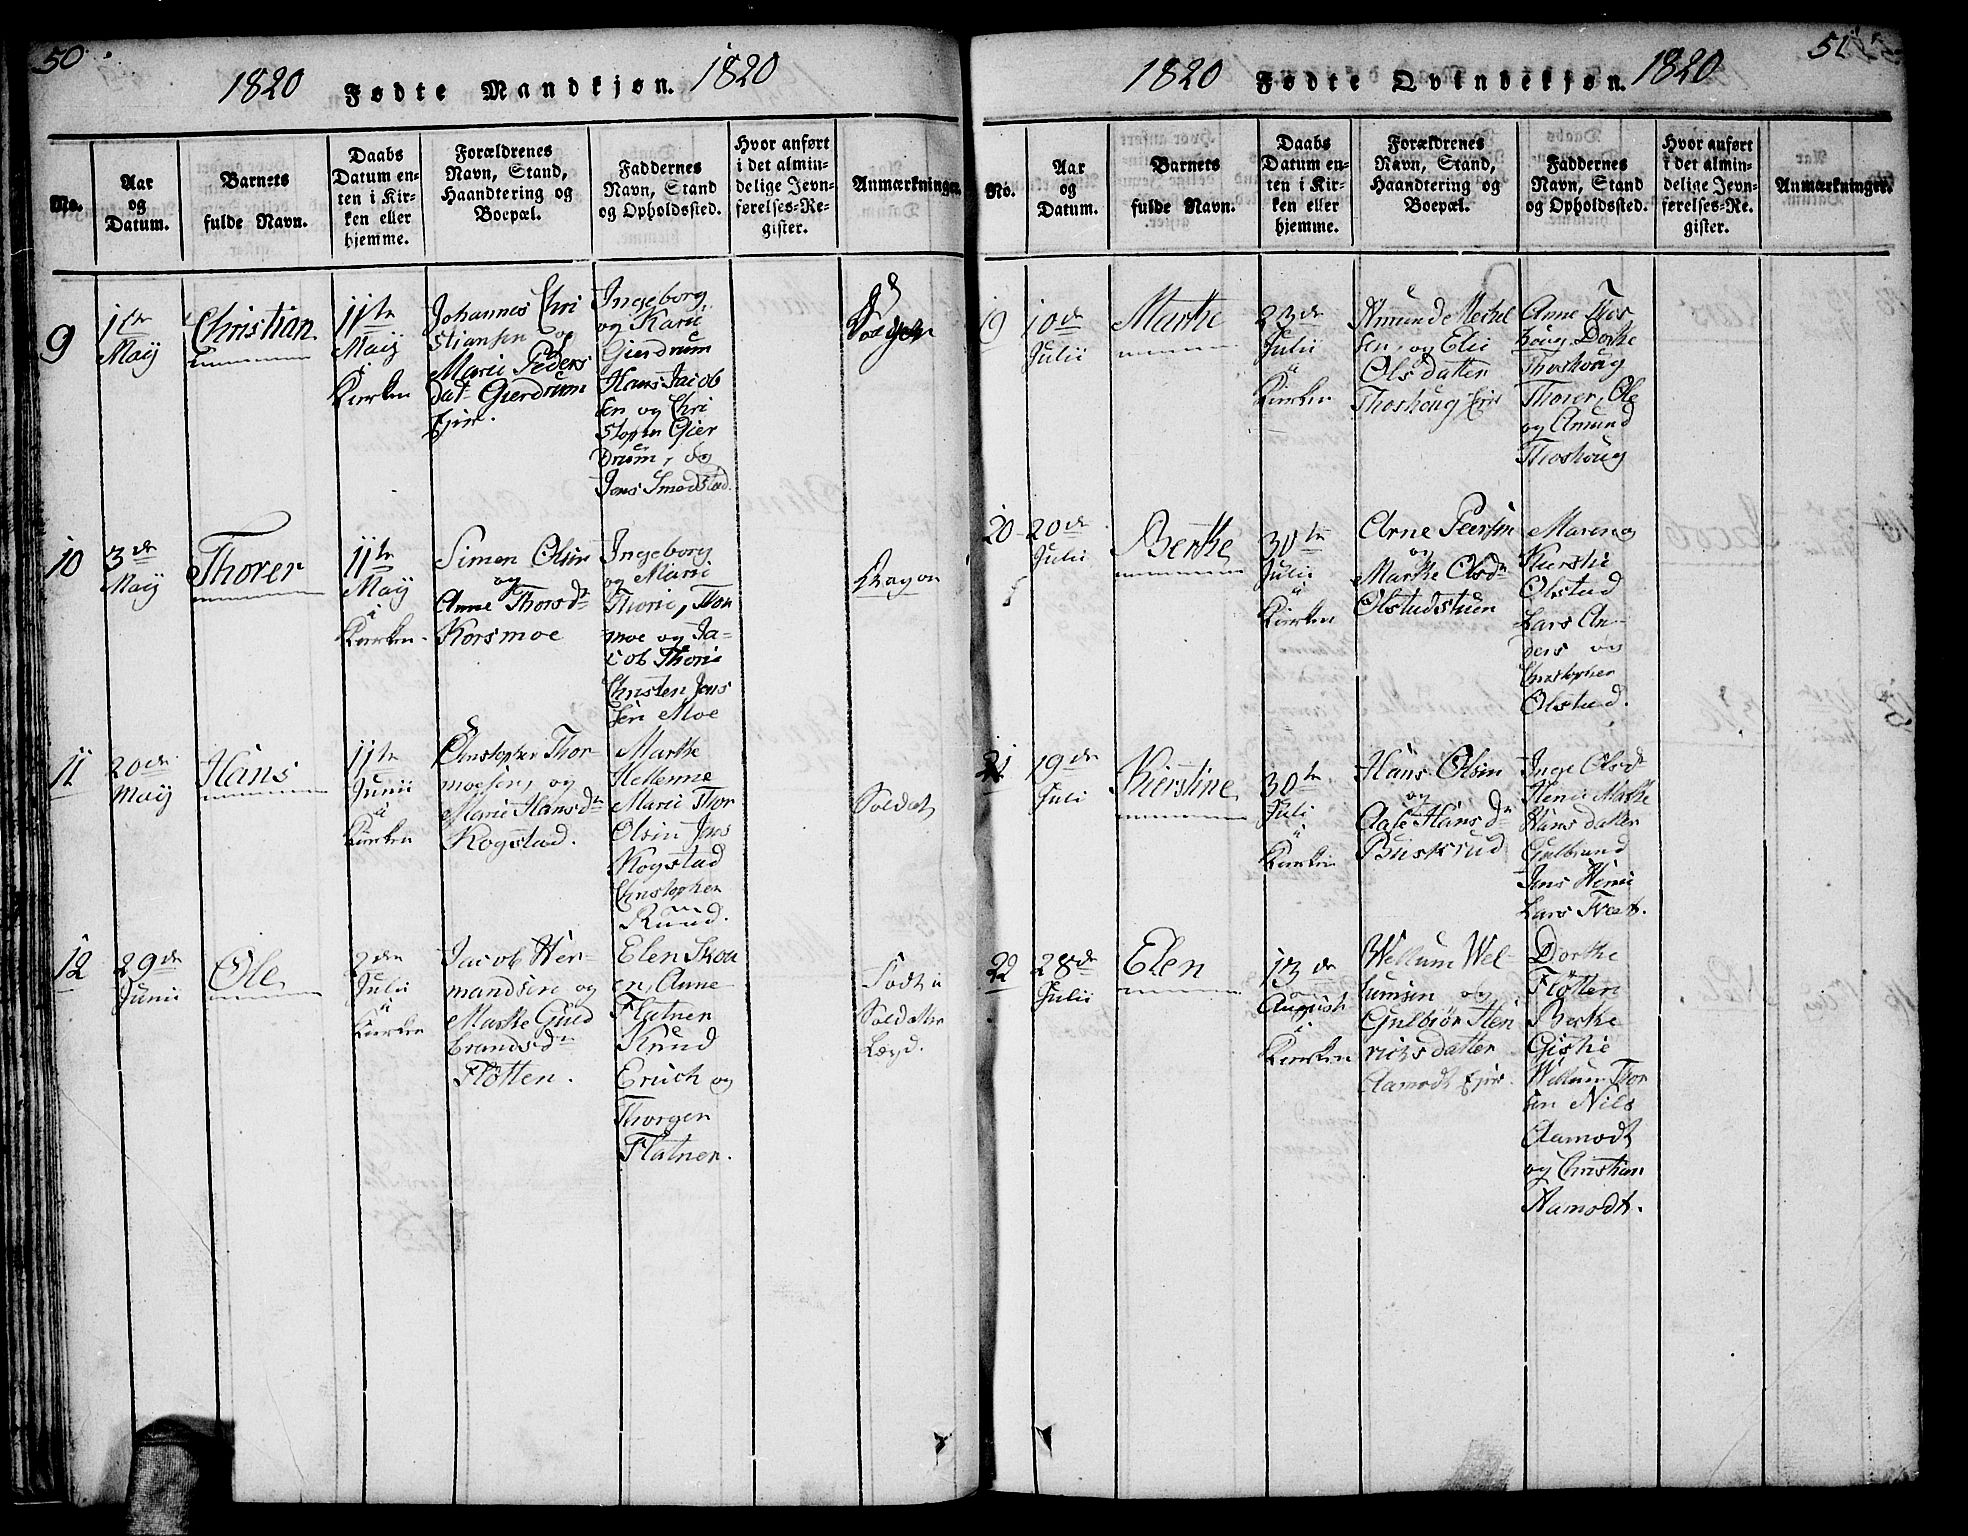 50.
1820 Fødte Mandkjøn. 1820
No.
Aar
og
Datum.
Barnets
fulde Navn.
Daabs
Datum en-
ten i Kir-
ken eller
hjemme.
Forældrenes
Navn, Stand,
Haandtering og
Boepæl.
Faddernes
Navn, Stand
og Opholdssted.
Hvor anført
i det almin-
delige Jevn-
førelses-Re-
gister.
Anmærkninger.
9
1te
Maij
Christian
11te
Maij
i
Kirken
Johannes Chri
stiansen og
Marie Peders
dat Gierdrum
Ejer.
Ingeborg
og Karie
Gierdrum
Hans Jacob
sen og Chri
stopher Gier
drum, og
Jens Smedstad.
10
3de
Maij
Thorer
11te
Maij
i
Kirken.
Simen Olsen
og
Anne Thorsdr
Korsmoe
Ingeborg
og Marie
Thorie, Thor
moe og Ja-
cob Thorie
Christen Jens
sen Moe
Dragon
11
20de
Maij
Hans
11te
Junii
i
Kirken
Christopher Thor
moesen, og
Marie Hansdr
Kogstad.
Marthe
Hellerine
Marie Thor
Olsen Jens
Kogstad
Christopher
Ruud.
Soldat
12
29de
Junii
Ole
2den
Julii
i
Kirken
Jacob Her-
mandsen og
Marthe Guld
brandsdr
Fløtten.
Elen Skoa
en, Anne
Flatner
Knud
Erich og
Thorger
Flatner.
Født i
Soldatter
Lægd.
51
1820 Fødte Qvindekjøn. 1820
No.
Aar
og
Datum.
Barnets
fulde Navn.
Daabs
Datum en-
ten i Kir-
ken eller
hjemme.
Forældrenes
Navn, Stand,
Haandtering og
Boepæl.
Faddernes
Navn, Stand
og Opholdssted.
Hvor anført
i det almin-
delige Jevn-
førelses-Re-
gister.
Anmærkninger.
19
10de
Julii
Marthe
23de
Julii
i
Kirken
Amund Mickel
sen, og Elie
Olsdatter
Thoshoug Ejer
Anne Thos
houg, Dorthe
Thoshoug
Thorer, Ole
og Amund
Thoshoug
20
20de
Julii
Berthe
30te
Julii
i
Kirken
Arne Peersen
og
Marthe Olsdr
Olstadstuen
Maren og
Kierstie
Olstad
Lars An-
ders og
Christopher
Olstad.
21
19de
Juli
Kierstine
30te
Juli
i
Kirken
Hans Olsen
og
Aase Hansdr
Buskrud
Inge Olsdr
Henie Marthe
Hans datter
Gulbrand
Jens Henie
Lars Tvet.
22
28de
Julii
Elen
13de
August
i
Kirken
Wellum Wel-
lumsen og
Gulbiør Hen
richs datter
Aamodt Ejer.
Dorthe
Fløtten
Berthe
Giskie
Wellum Thor
sen Nils
Aamodt
og Christian
Aamodt.